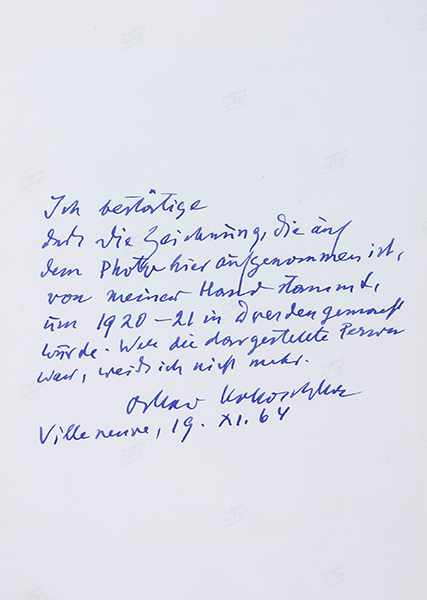 Ich bestätige
daß die Zeichnung, die auf
dem Photo hier aufgenommen ist,
von meiner Hand stammt,
um 1920–21 in Dresden gemacht
wurde. Wer die dargestellte Person
war, weiß ich nicht mehr.
Oskar Kokoschka
Villeneuve, 19. XI. 64